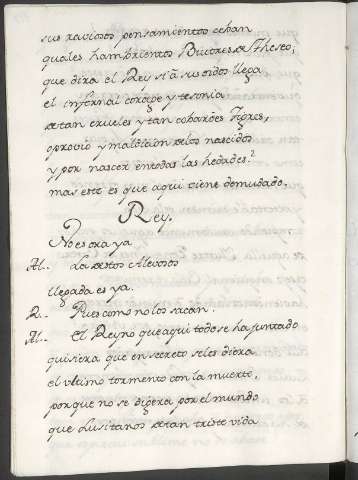 sus raviosos pensamientos ceban
quales hambrientos Buitres de Theseo,
que dira el Rey si â sus oidos llega
el infernal corage y tesonia
de tan crueles y tan cobardes Tigres,
oprovio y maldicion de los nascidos
y por nascer en todas las hedades.?
mas este es que aqui viene demudado.
Rey.
No es ora ya
Al.. La de estos Alevosos
llegada es ya.
R.. Pues como no los sacan.
Al.. El Reyno que aqui todo se ha juntado
quisiera que en secreto se les diera
el ultimo tormento con la muerte,
porque no se digera por el mundo
que Lusitanos de tan triste vida